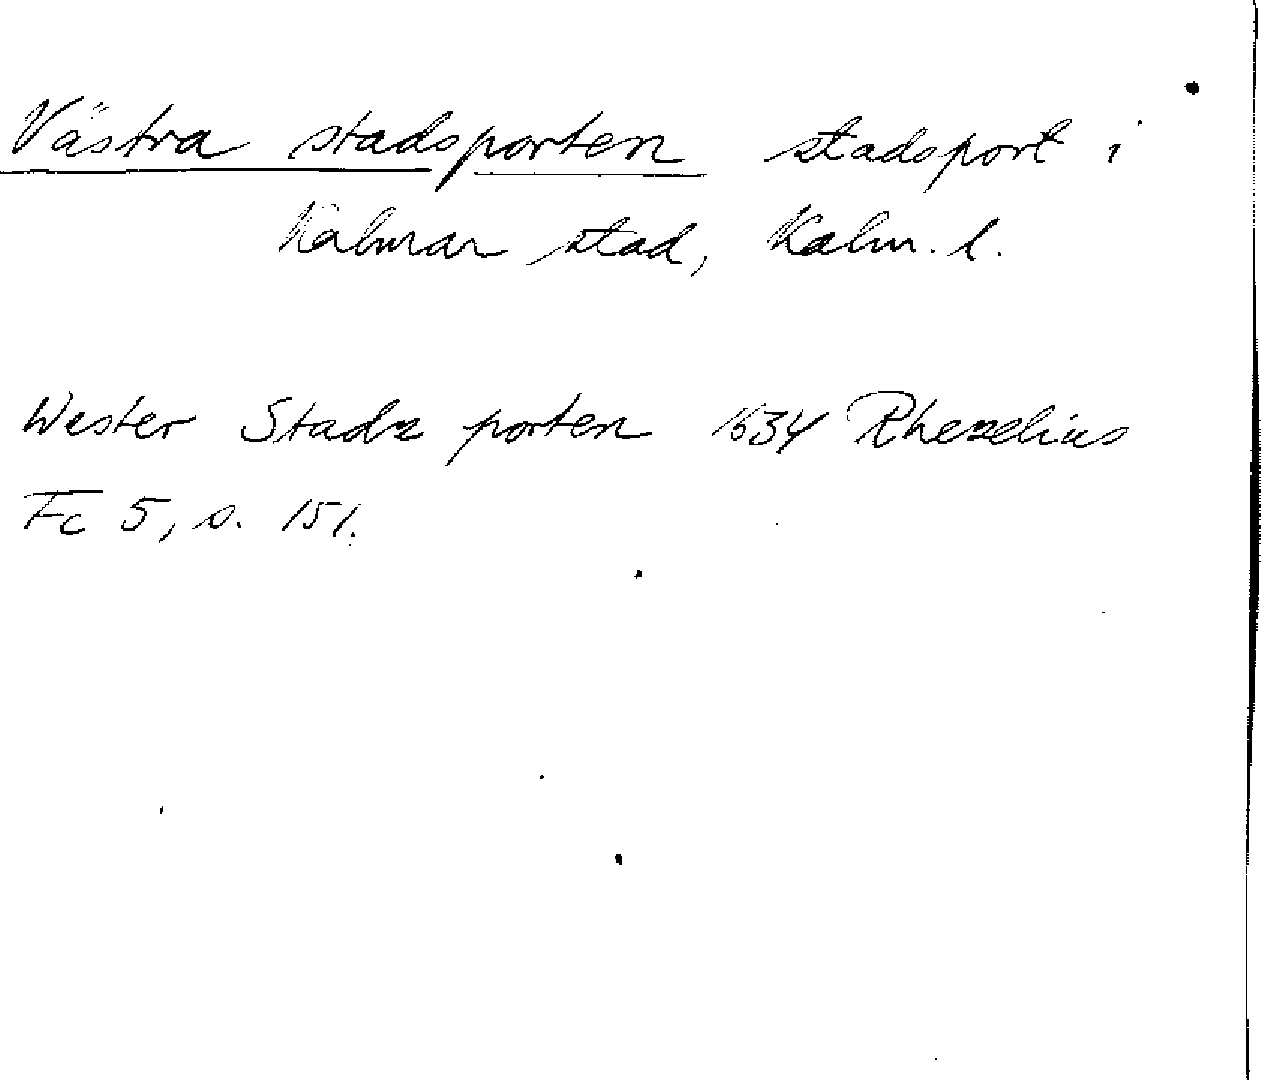 Västra stadsporten stadsport i
Kalmar stad, Kalm. l.
Wester Stadz porten 1634 Rhezelius
Fc 5, s. 151.